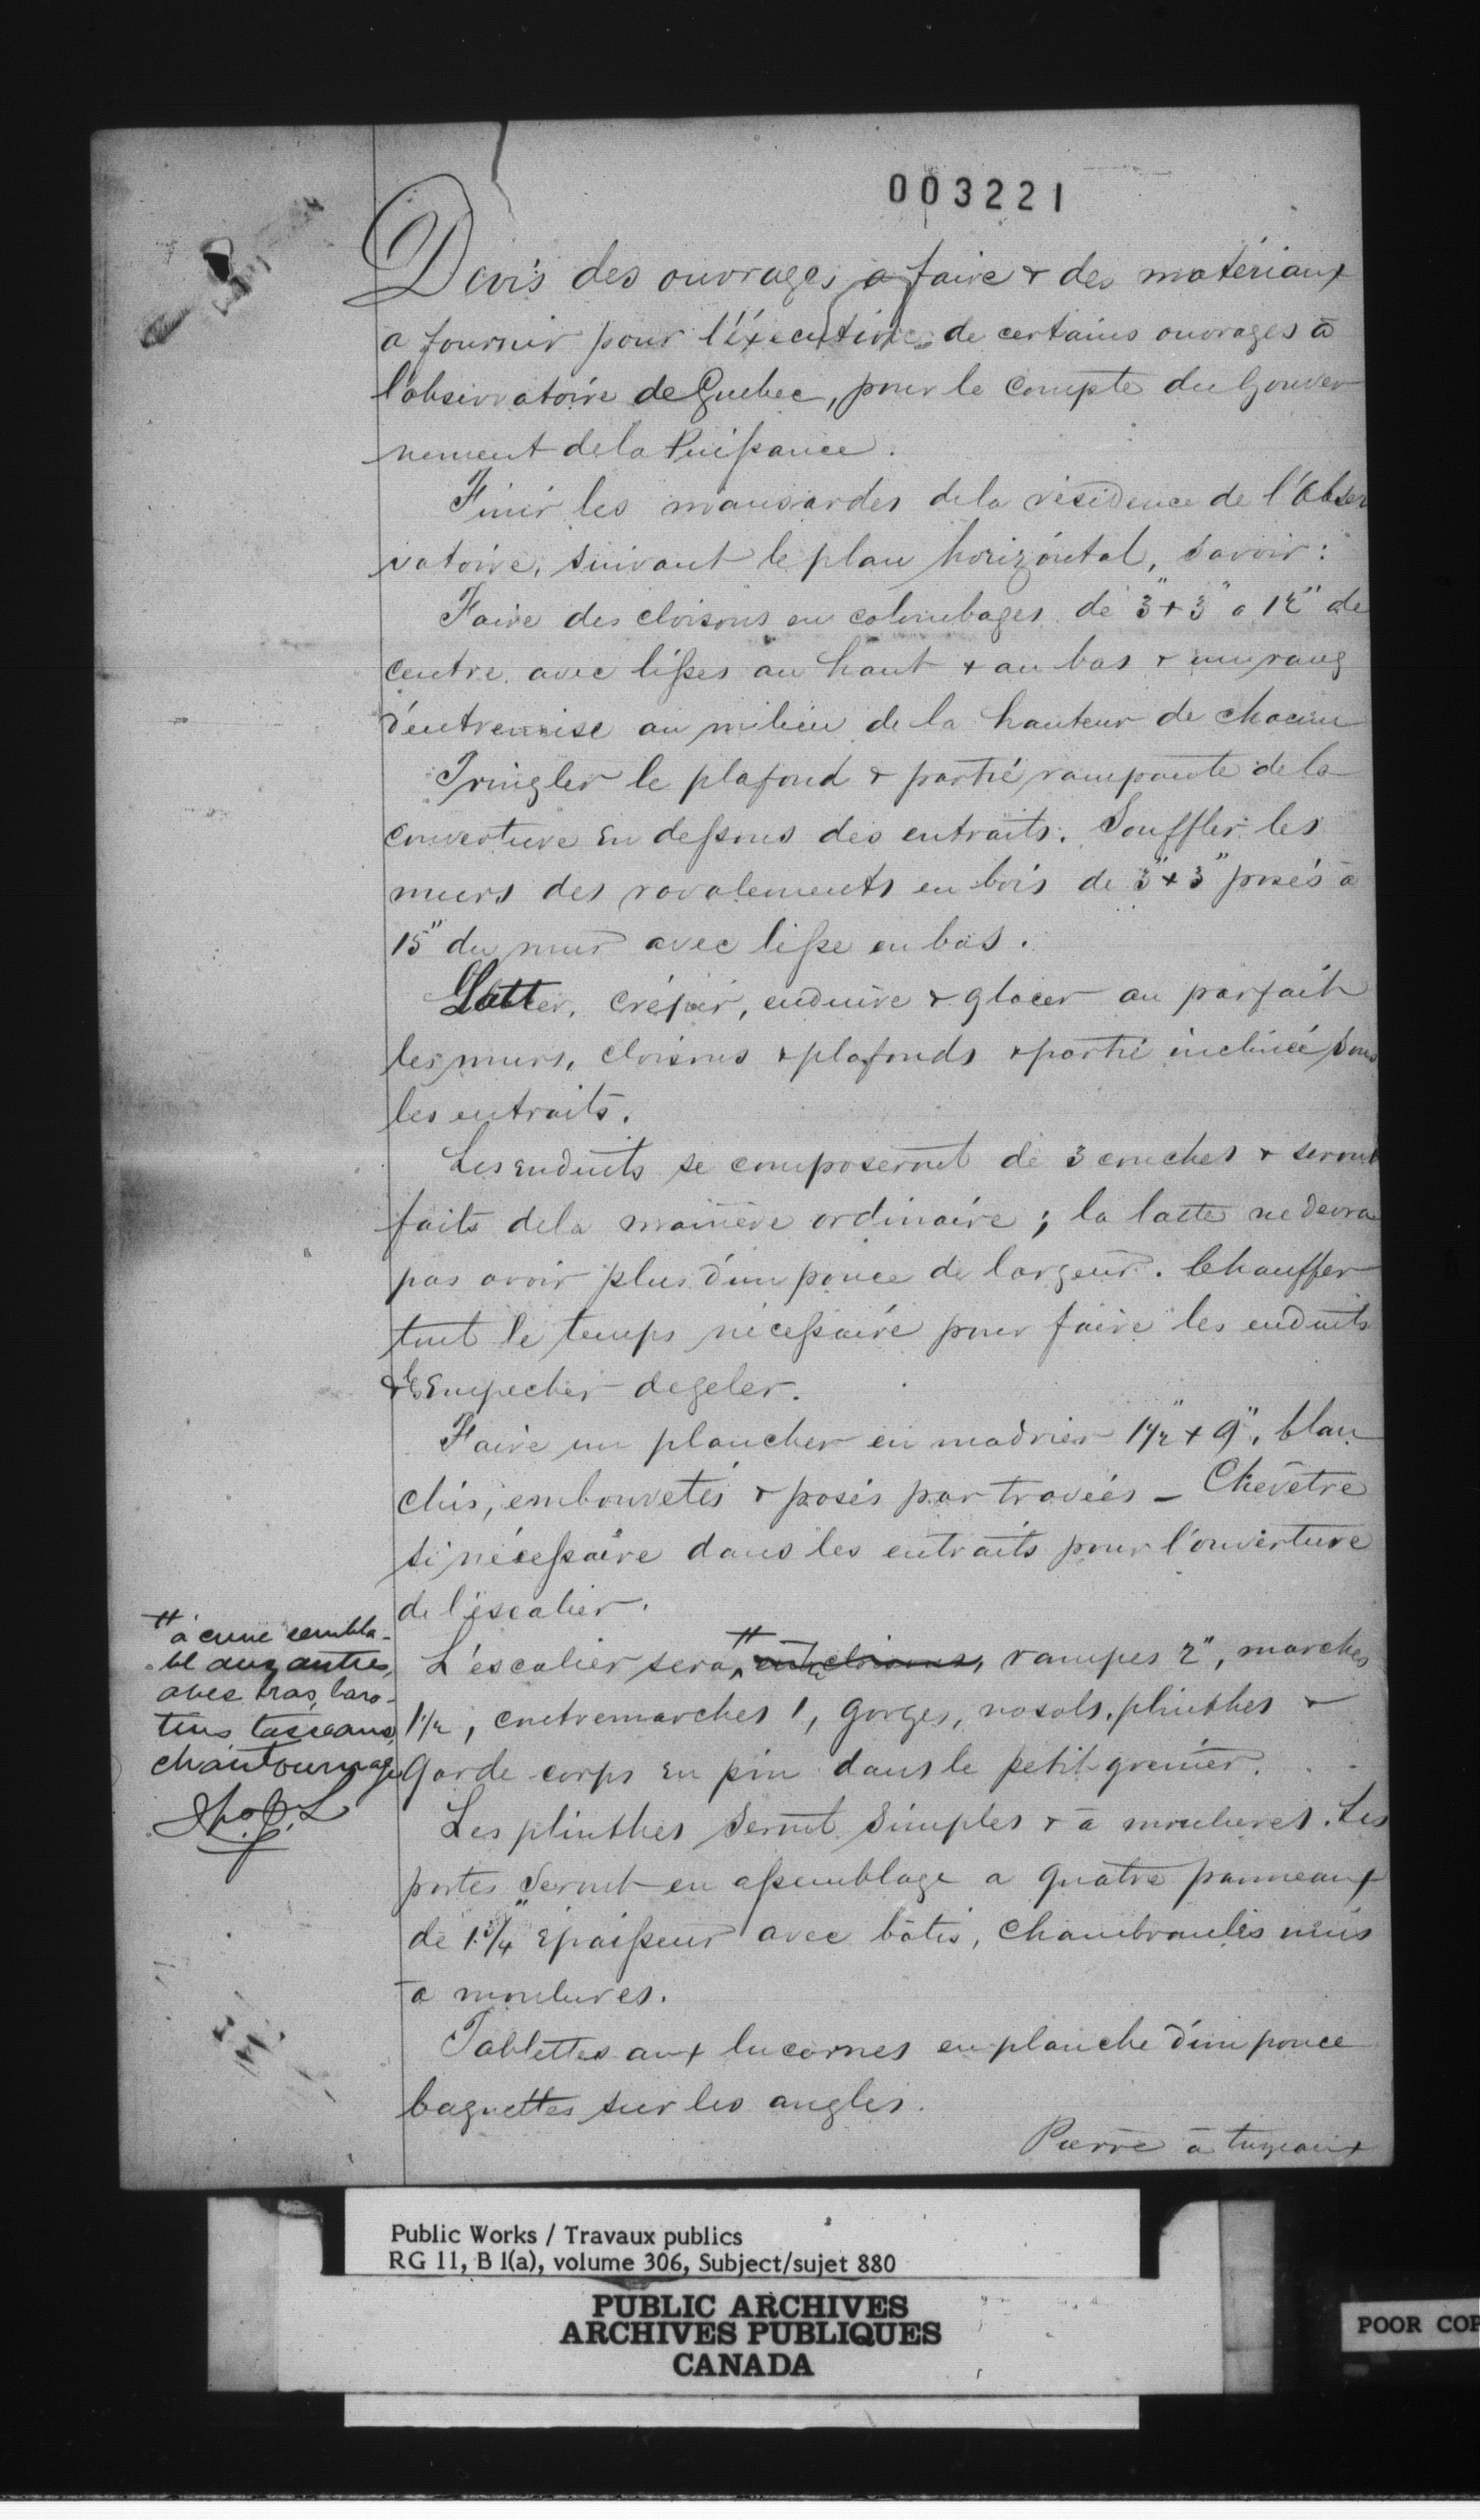 003221
Devis des ouvrages a faire & des matériaux
a fournir pour l'éxecution de certains ouvrages à
l'observatoire de Quebec, pour le compte du Gouver
nement de la Puissance.
Finir les mansardes de la résidence de l'Obser
vatoire, suivant le plan horizontal, savoir:
Faire des cloisons en colombages de 3"+3" a 12" de
centre avec lisses au haut & au bas & un rang
d'entremise au milieu de la hauteur de chacun
Tringler le plafond & partie rampante de la
couverture en dessous des entraits. Souffler les
murs des ravalements en bois de 3"+3" posés à
15" du mur avec lisse en bas.
Latter, crépir, enduire & glacer au parfait
les murs, cloisons & plafonds & partie inclinée sous
les entraits.
Les enduits se composeront de 3 couches & seront
faits de la manière ordinaire; la latte ne devra
pas avoir plus d'un pouce de largeur. Chauffer
tout le temps nécessaire pour faire les enduits
& les Empecher de geler.
Faire un plancher en madrier 1 1/2"+9", blan
chis, embouvetés & posés par travées - Chevêtre
si nécessaire dans les entraits pour l'ouverture
de l'escalier.
L'escalier sera # entre cloisons, rampes 2", marches
1 1/2, contremarches 1, gorges, nosols, plinthes &
Garde corps en pin dans le petit grenier.
# à sembla-
ble aux autres,
avec bras, baro-
tins tasseaux,
chantournage
Les plinthes seront simples & à moulures. Les
portes seront en assemblage a quatre panneaux
de 1 3/4" épaisseur avec bâtis, chambranles unis
à moulures.
Tablettes aux lucarnes en planche d'un pouce
baguettes sur les angles.
Pierre à tuyaux
Public Works / Travaux publics
RG 11, B 1(a), volume 306, Subject/sujet 880
PUBLIC ARCHIVES
ARCHIVES PUBLIQUES
CANADA
POOR COP